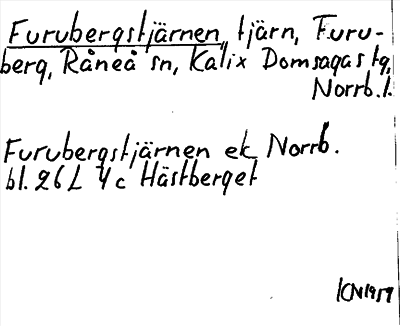 Furubergstjärnen, tjärn, Furu-
berg, Råneå sn, Kalix Domsagas tg,
Norrb. l.
Furubergstjärnen ek Norrb.
bl. 26 L 4 c Hästberget